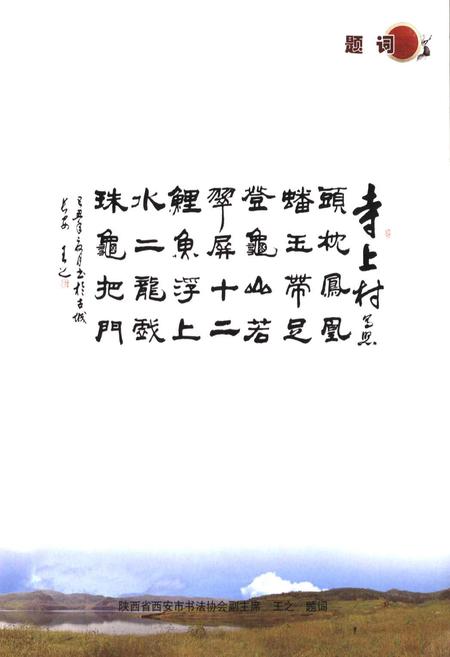 题 词
寺上村
頭枕鳳凰
蟠玉帶足
登龜山若
翠屏十二
鯉魚浮上
水二龍戲
珠龜把門
己丑年 月书於古城
长安 王之
陕西省西安市书法协会副主席 王之 题词